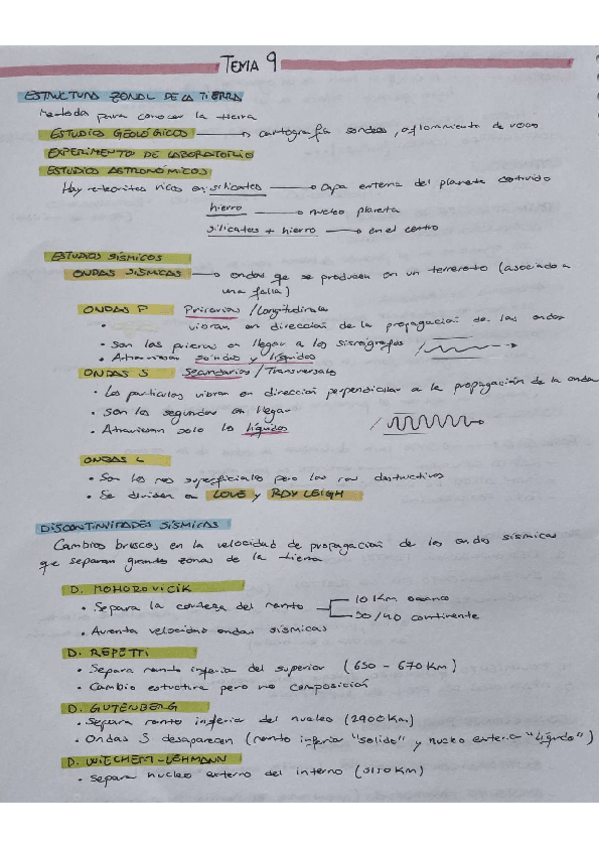 TEMA 9
ESTRUCTURA ZONAL DE LA TIERRA
Metodo para conocer la tierra
ESTUDIOS GEOLÓGICOS → cartografía sondeos, afloramiento de rocas
EXPERIMENTO DE LABORATORIO
ESTUDIOS ASTRONÓMICOS
Hay meteoritos ricos en silicatos → capa externa del planeta
hierro → nucleo planeta
silicatos + hierro → en el centro
ESTUDIOS SÍSMICOS
ONDAS SISMICAS → ondas que se producen en un terremoto (asociado a
una falla)
ONDAS P Primarias / Longitudinales
• vibran en dirección de la propagación de las ondas
• Son las primeras en llegar a los sismógrafos
• Atraviesan solidos y líquidos
ONDAS S Secundarias / Transversales
• Las particulas vibran en dirección perpendicular a la propagación de la onda
• Son las segundas en llegar
• Atraviesan solo los líquidos
ONDAS L
• Son las mas superficiales pero las mas destructivas
• Se dividen en LOVE y RAYLEIGH
DISCONTINUIDADES SÍSMICAS
Cambios bruscos en la velocidad de propagación de las ondas sísmicas
que separan grandes zonas de la tierra
D. MOHOROVICIK
• Separa la corteza del manto
10 Km oceano
30/40 continente
• Aumenta velocidad ondas sísmicas
D. REPETTI
• Separa manto inferior del superior (650 - 670 Km)
• Cambio estructura pero no composición
D. GUTENBERG
• Separa manto inferior del nucleo (2900 Km)
• Ondas S desaparecen (manto inferior "solido" y nucleo externo "líquido")
D. WIECHERT-LEHMANN
• Separa nucleo externo del interno (5150 Km)